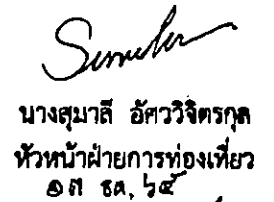 นางสุมาลี อัศววิจิตรกุล
หัวหน้าฝ่ายการท่องเที่ยว
๑๗ ธค, ๖๔